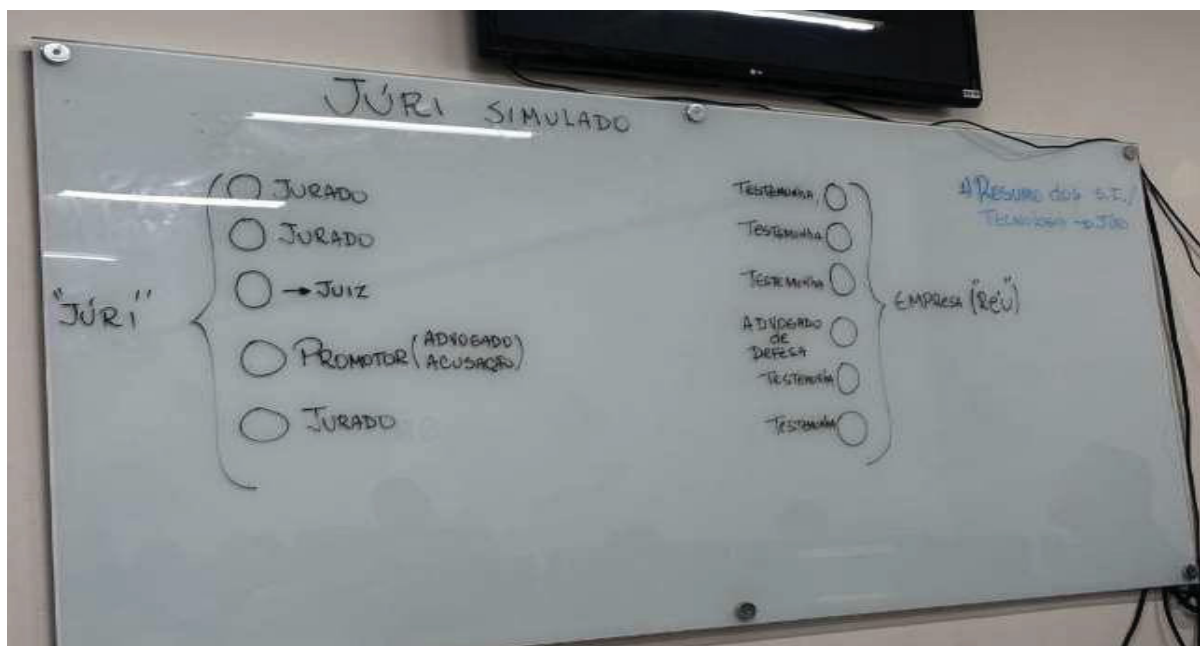 JÚRI SIMULADO
"JÚRI"
JURADO
JURADO
→ JUIZ
PROMOTOR (ADVOGADO
ACUSAÇÃO)
JURADO
TESTEMUNHA
TESTEMUNHA
TESTEMUNHA
ADVOGADO
DE
DEFESA
TESTEMUNHA
TESTEMUNHA
EMPRESA ("RÉU")
RESUMO dos S.I./
LG